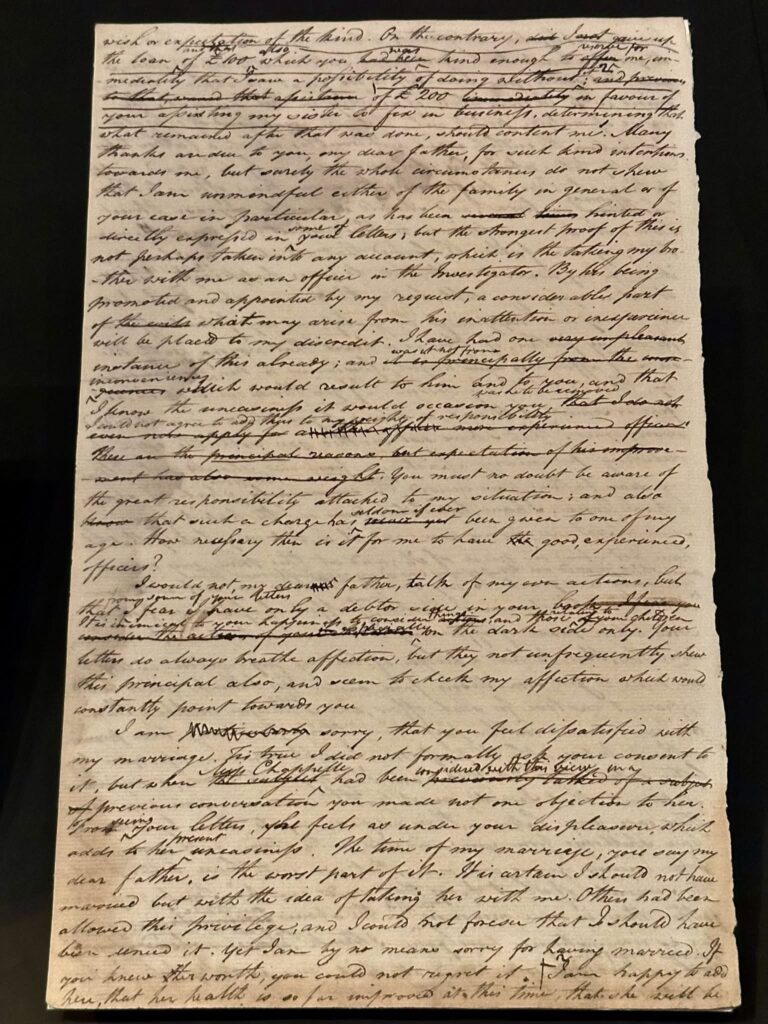 wish or expectation of the kind. On the contrary, did I not gave up
and this also. never reserve for
the loan of £100 which you had been kind enough to offer me, im-
mediately that I saw a possibility of doing without it; and previous
to that, waved that assistance of £200 immediately in favour of
your assisting my sister to fix in business, determining that
what remained after that was done, should content me. Many
thanks are due to you, my dear father, for such kind intentions
towards me, but surely the whole circumstances do not shew
that I am unmindful either of the family in general or of
your case in particular, as has been several times hinted or
some of
directly expressed in your letters; but the strongest proof of this is
not perhaps taken into any account, which is the taking my bro-
ther with me as an officer in the Investigator. By his being
promoted and appointed by my request, a considerable part
of the evils what may arise from his inattention or inexperience
will be placed to my discredit. I have had one very unpleasant
instance of this already; and it is principally from the
was it not from
inconveniences which would result to him and to you, and that
was he to be removed
I know the uneasiness it would occasion you, that I do not
I could not agree to add thus to my weight of responsibility
even now apply for a more experienced officer.
These are the principal reasons, but expectation of his improve-
ment has also some weight. You must no doubt be aware of
the great responsibility attached to my situation; and also
seldom if ever
know that such a charge has never yet been given to one of my
age. How necessary then is it for me to have the good, experienced,
officers?
I would not, my dear father, talk of my own actions, but
from some of your letters
that I fear I have only a debtor side in your books. I fear you
It is inimical to your happiness to consider things and those relating to your children
consider the actions of your especially on the dark side only. Your
letters do always breathe affection, but they not unfrequently shew
this principal also, and seem to check my affection which would
constantly point towards you
I am sorry, that you feel dissatisfied with
my marriage. Tis true I did not formally ask your consent to
Miss Chappelle considered with this view in my
it, but when the subject had been previously talked of a subject
of previous conversation you made not one objection to her.
seeing
From your letters, she feels as under your displeasure, which
present
adds to her uneasiness. The time of my marriage, you say my
dear father, is the worst part of it. It is certain I should not have
married but with the idea of taking her with me. Others had been
allowed this privilege, and I could not foresee that I should have
been denied it. Yet I am by no means sorry for having married. If
you knew her worth, you could not regret it. I am happy to add
here, that her health is so far improved at this time, that she will be